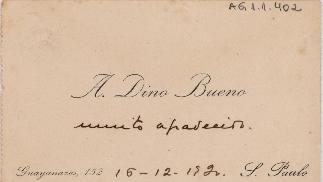 AG.1.1.402
A. Dino Bueno
muito agradecido.
Guayanazes, 152 16-12-192. S. Paulo